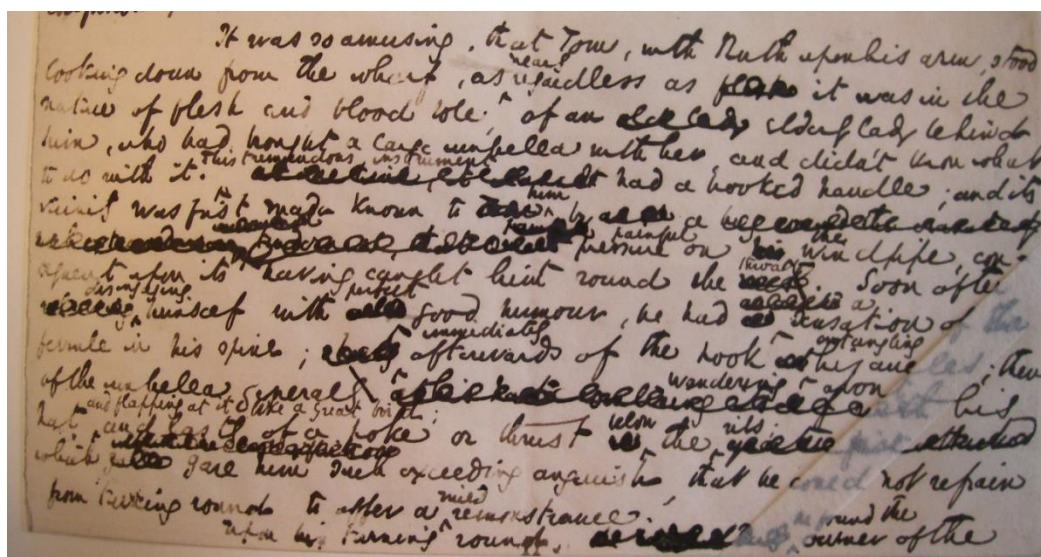 It was so amusing, that Tom, with Ruth upon his arm, stood
looking down from the wharf, as nearly regardless as it was in the
nature of flesh and blood to be, of an elderly lady behind
him, who had brought a large umbrella with her, and didn't know what
to do with it. This tremendous instrument had a hooked handle; and its
vicinity was first made known to him by a
painful pressure on the windpipe, con-
sequent upon its having caught him round the throat. Soon after
disengaging himself with perfect good humour, he had a sensation of the
ferule in his spine; immediately afterwards of the hook entangling his ankles; then
of the umbrella generally, wandering about his
hat, and flapping at it like a great bird;
and lastly of a poke or thrust below the ribs,
which gave him such exceeding anguish, that he could not refrain
from turning round to offer a mild remonstrance.
Upon his turning round, he found the owner of the